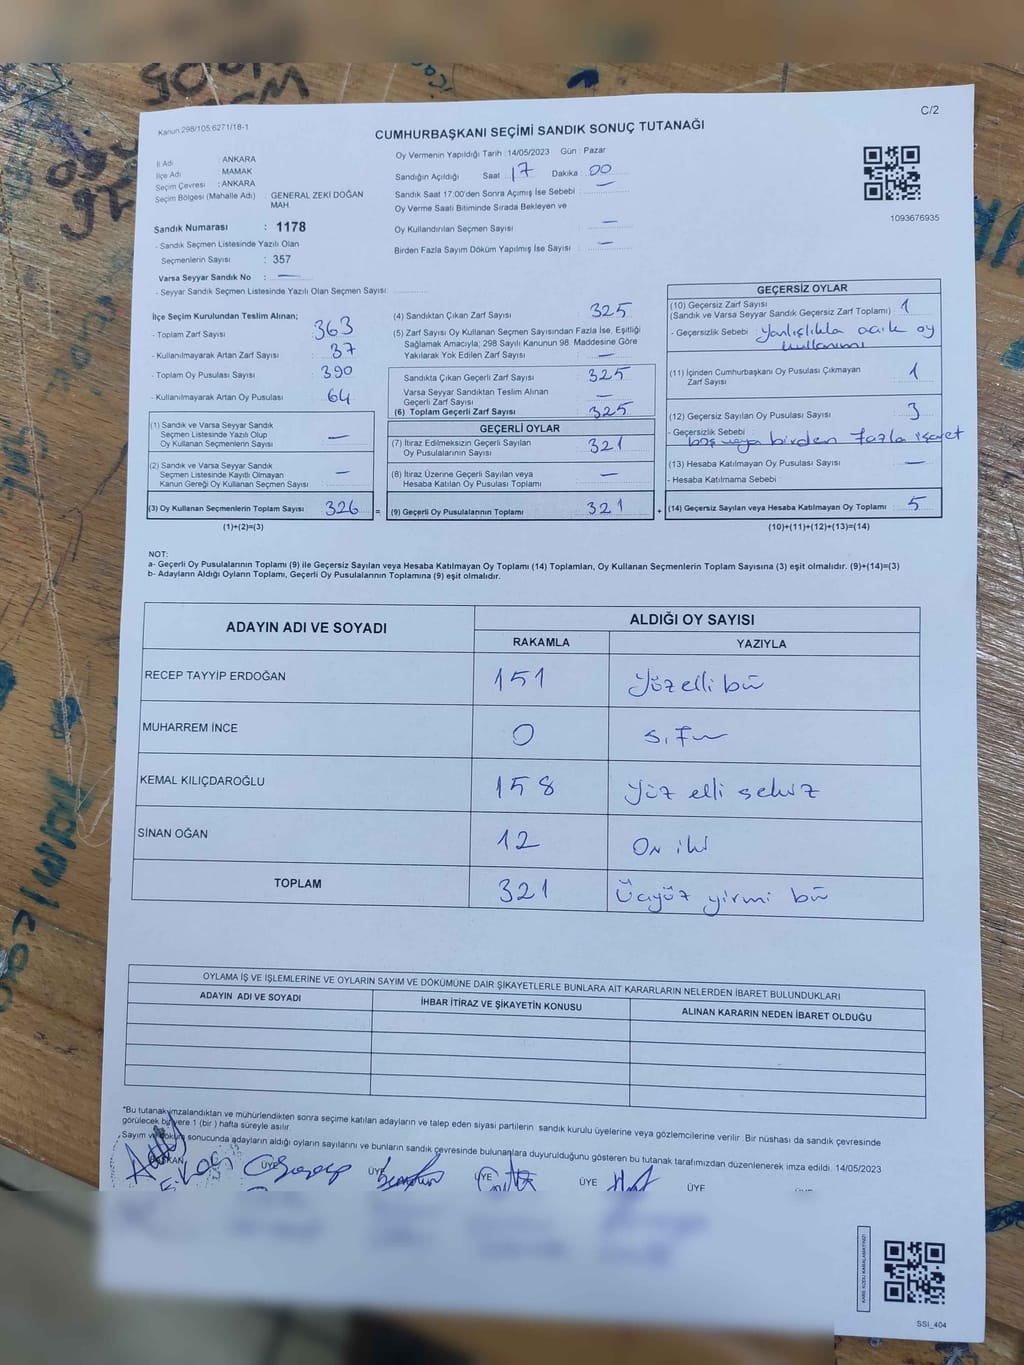 C/2
Kanun:298/105;6271/18-1
CUMHURBAŞKANI SEÇİMİ SANDIK SONUÇ TUTANAĞI
İl Adı : ANKARA
İlçe Adı : MAMAK
Seçim Çevresi : ANKARA
Seçim Bölgesi (Mahalle Adı) : GENERAL ZEKİ DOĞAN MAH.
Sandık Numarası : 1178
- Sandık Seçmen Listesinde Yazılı Olan
Seçmenlerin Sayısı : 357
Varsa Seyyar Sandık No : —
- Seyyar Sandık Seçmen Listesinde Yazılı Olan Seçmen Sayısı:
Oy Vermenin Yapıldığı Tarih :14/05/2023 Gün : Pazar
Sandığın Açıldığı Saat : 17 Dakika : 00
Sandık Saat 17:00'den Sonra Açılmış İse Sebebi : —
Oy Verme Saati Bitiminde Sırada Bekleyen ve
Oy Kullandırılan Seçmen Sayısı —
Birden Fazla Sayım Döküm Yapılmış İse Sayısı : —
1093676935
İlçe Seçim Kurulundan Teslim Alınan;
- Toplam Zarf Sayısı : 363
- Kullanılmayarak Artan Zarf Sayısı : 37
- Toplam Oy Pusulası Sayısı : 390
- Kullanılmayarak Artan Oy Pusulası : 64
(1) Sandık ve Varsa Seyyar Sandık
Seçmen Listesinde Yazılı Olup
Oy Kullanan Seçmenlerin Sayısı —
(2) Sandık ve Varsa Seyyar Sandık
Seçmen Listesinde Kayıtlı Olmayan
Kanun Gereği Oy Kullanan Seçmen Sayısı —
(3) Oy Kullanan Seçmenlerin Toplam Sayısı 326 =
(1)+(2)=(3)
(4) Sandıktan Çıkan Zarf Sayısı : 325
(5) Zarf Sayısı Oy Kullanan Seçmen Sayısından Fazla İse, Eşitliği
Sağlamak Amacıyla; 298 Sayılı Kanunun 98. Maddesine Göre
Yakılarak Yok Edilen Zarf Sayısı : —
Sandıkta Çıkan Geçerli Zarf Sayısı : 325
Varsa Seyyar Sandıktan Teslim Alınan
Geçerli Zarf Sayısı : —
(6) Toplam Geçerli Zarf Sayısı : 325
GEÇERLİ OYLAR
(7) İtiraz Edilmeksizin Geçerli Sayılan
Oy Pusulalarının Sayısı : 321
(8) İtiraz Üzerine Geçerli Sayılan veya
Hesaba Katılan Oy Pusulası Toplamı : —
(9) Geçerli Oy Pusulalarının Toplamı : 321 +
GEÇERSİZ OYLAR
(10) Geçersiz Zarf Sayısı
(Sandık ve Varsa Seyyar Sandık Geçersiz Zarf Toplamı) : 1
- Geçersizlik Sebebi : yanlışlıkla açık oy
kullanımı
(11) İçinden Cumhurbaşkanı Oy Pusulası Çıkmayan
Zarf Sayısı : 1
(12) Geçersiz Sayılan Oy Pusulası Sayısı : 3
- Geçersizlik Sebebi :
boş veya birden fazla işaret
(13) Hesaba Katılmayan Oy Pusulası Sayısı : —
- Hesaba Katılmama Sebebi :
(14) Geçersiz Sayılan veya Hesaba Katılmayan Oy Toplamı : 5
(10)+(11)+(12)+(13)=(14)
NOT:
a- Geçerli Oy Pusulalarının Toplamı (9) ile Geçersiz Sayılan veya Hesaba Katılmayan Oy Toplamı (14) Toplamları, Oy Kullanan Seçmenlerin Toplam Sayısına (3) eşit olmalıdır. (9)+(14)=(3)
b- Adayların Aldığı Oyların Toplamı, Geçerli Oy Pusulalarının Toplamına (9) eşit olmalıdır.
ADAYIN ADI VE SOYADI ALDIĞI OY SAYISI
RAKAMLA YAZIYLA
RECEP TAYYİP ERDOĞAN 151 Yüz elli bir
MUHARREM İNCE 0 Sıfır
KEMAL KILIÇDAROĞLU 158 Yüz elli sekiz
SİNAN OĞAN 12 On iki
TOPLAM 321 Üçyüz yirmi bir
OYLAMA İŞ VE İŞLEMLERİNE VE OYLARIN SAYIM VE DÖKÜMÜNE DAİR ŞİKAYETLERLE BUNLARA AİT KARARLARIN NELERDEN İBARET BULUNDUKLARI
ADAYIN ADI VE SOYADI İHBAR İTİRAZ VE ŞİKAYETİN KONUSU ALINAN KARARIN NEDEN İBARET OLDUĞU
*Bu tutanak imzalandıktan ve mühürlendikten sonra seçime katılan adayların ve talep eden siyasi partilerin sandık kurulu üyelerine veya gözlemcilerine verilir. Bir nüshası da sandık çevresinde
görülecek bir yere 1 (bir ) hafta süreyle asılır.
Sayım ve döküm sonucunda adayların aldığı oyların sayılarını ve bunların sandık çevresinde bulunanlara duyurulduğunu gösteren bu tutanak tarafımızdan düzenlenerek imza edildi. 14/05/2023
BAŞKAN ÜYE ÜYE ÜYE ÜYE ÜYE
KARE KODU KARALAMAYINIZ!
SSI_404